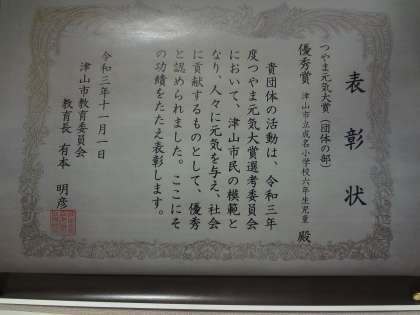 表彰状
つやま元気大賞(団体の部)
優秀賞 津山市立成名小学校六年生児童 殿
貴団体の活動は、令和三年
度つやま元気大賞選考委員会
において、津山市民の模範と
なり、人々に元気を与え、社会
に貢献するものとして、優秀
と認められました。ここにそ
の功績をたたえ表彰します。
令和三年十一月一日
津山市教育委員会
教育長 有本 明彦